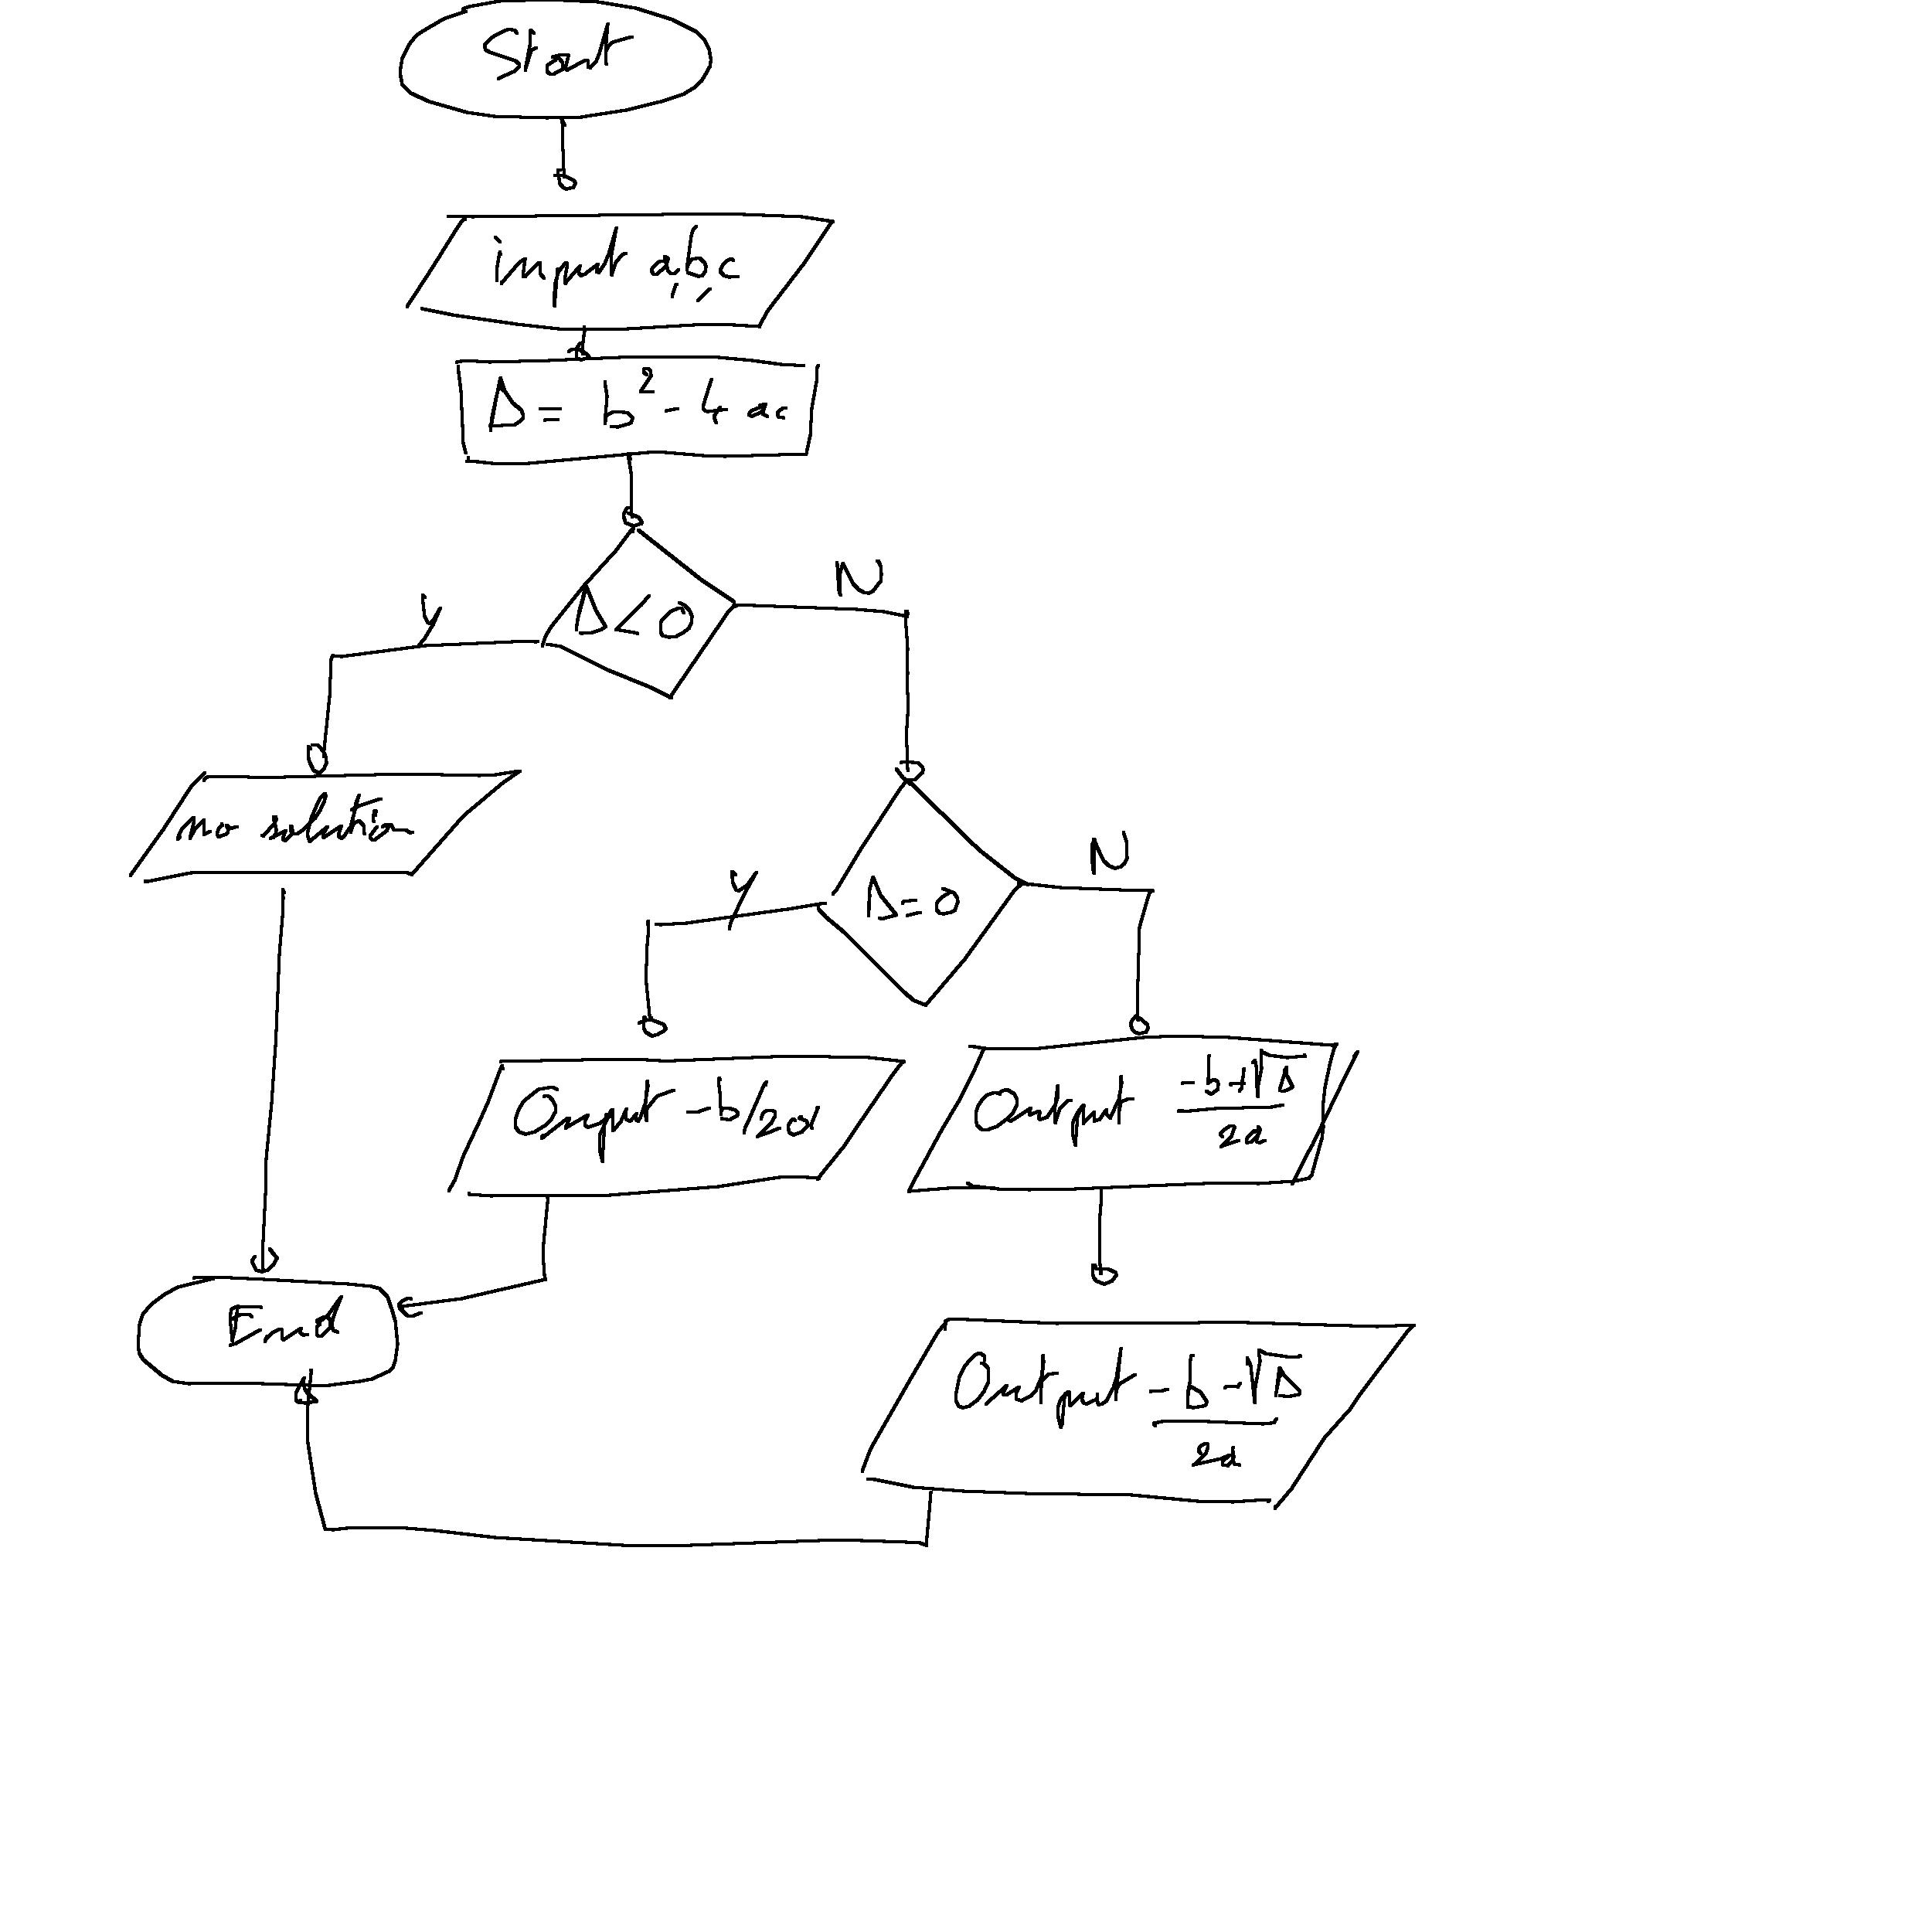 Start
input a,b,c
Δ = b² - 4 ac
Δ < 0
N
Y
no solution
Δ = 0
N
Y
Onput -b/2a
Output (-b+√Δ)/2a
End
Output (-b-√Δ)/2a